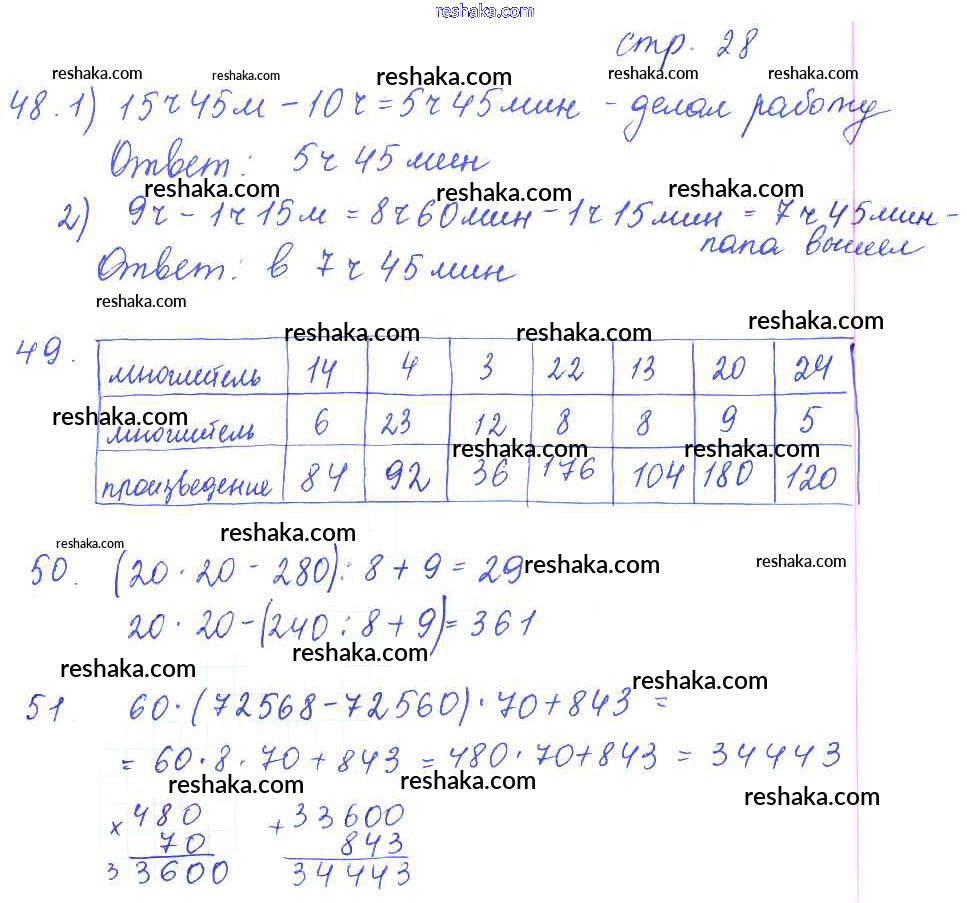 reshaka.com
стр. 28
reshaka.com reshaka.com reshaka.com reshaka.com
48. 1) 15ч45м - 10ч = 5ч45мин - делал работу
Ответ: 5ч 45мин
reshaka.com reshaka.com reshaka.com
2) 9ч - 1ч15м = 8ч60мин - 1ч15мин = 7ч45мин -
папа вышел
Ответ: в 7ч 45мин
reshaka.com
reshaka.com reshaka.com reshaka.com
49.
множитель 14 4 3 22 13 20 24
reshaka.com
множитель 6 23 12 8 8 9 5
reshaka.com reshaka.com
произведение 84 92 36 176 104 180 120
reshaka.com reshaka.com
50. (20 · 20 - 280) : 8 + 9 = 29
reshaka.com reshaka.com
20 · 20 - (240 : 8 + 9) = 361
reshaka.com
reshaka.com reshaka.com
51. 60 · (72568 - 72560) · 70 + 843 =
= 60 · 8 · 70 + 843 = 480 · 70 + 843 = 34443
reshaka.com reshaka.com reshaka.com
× 480 + 33600
70 843
33600 34443